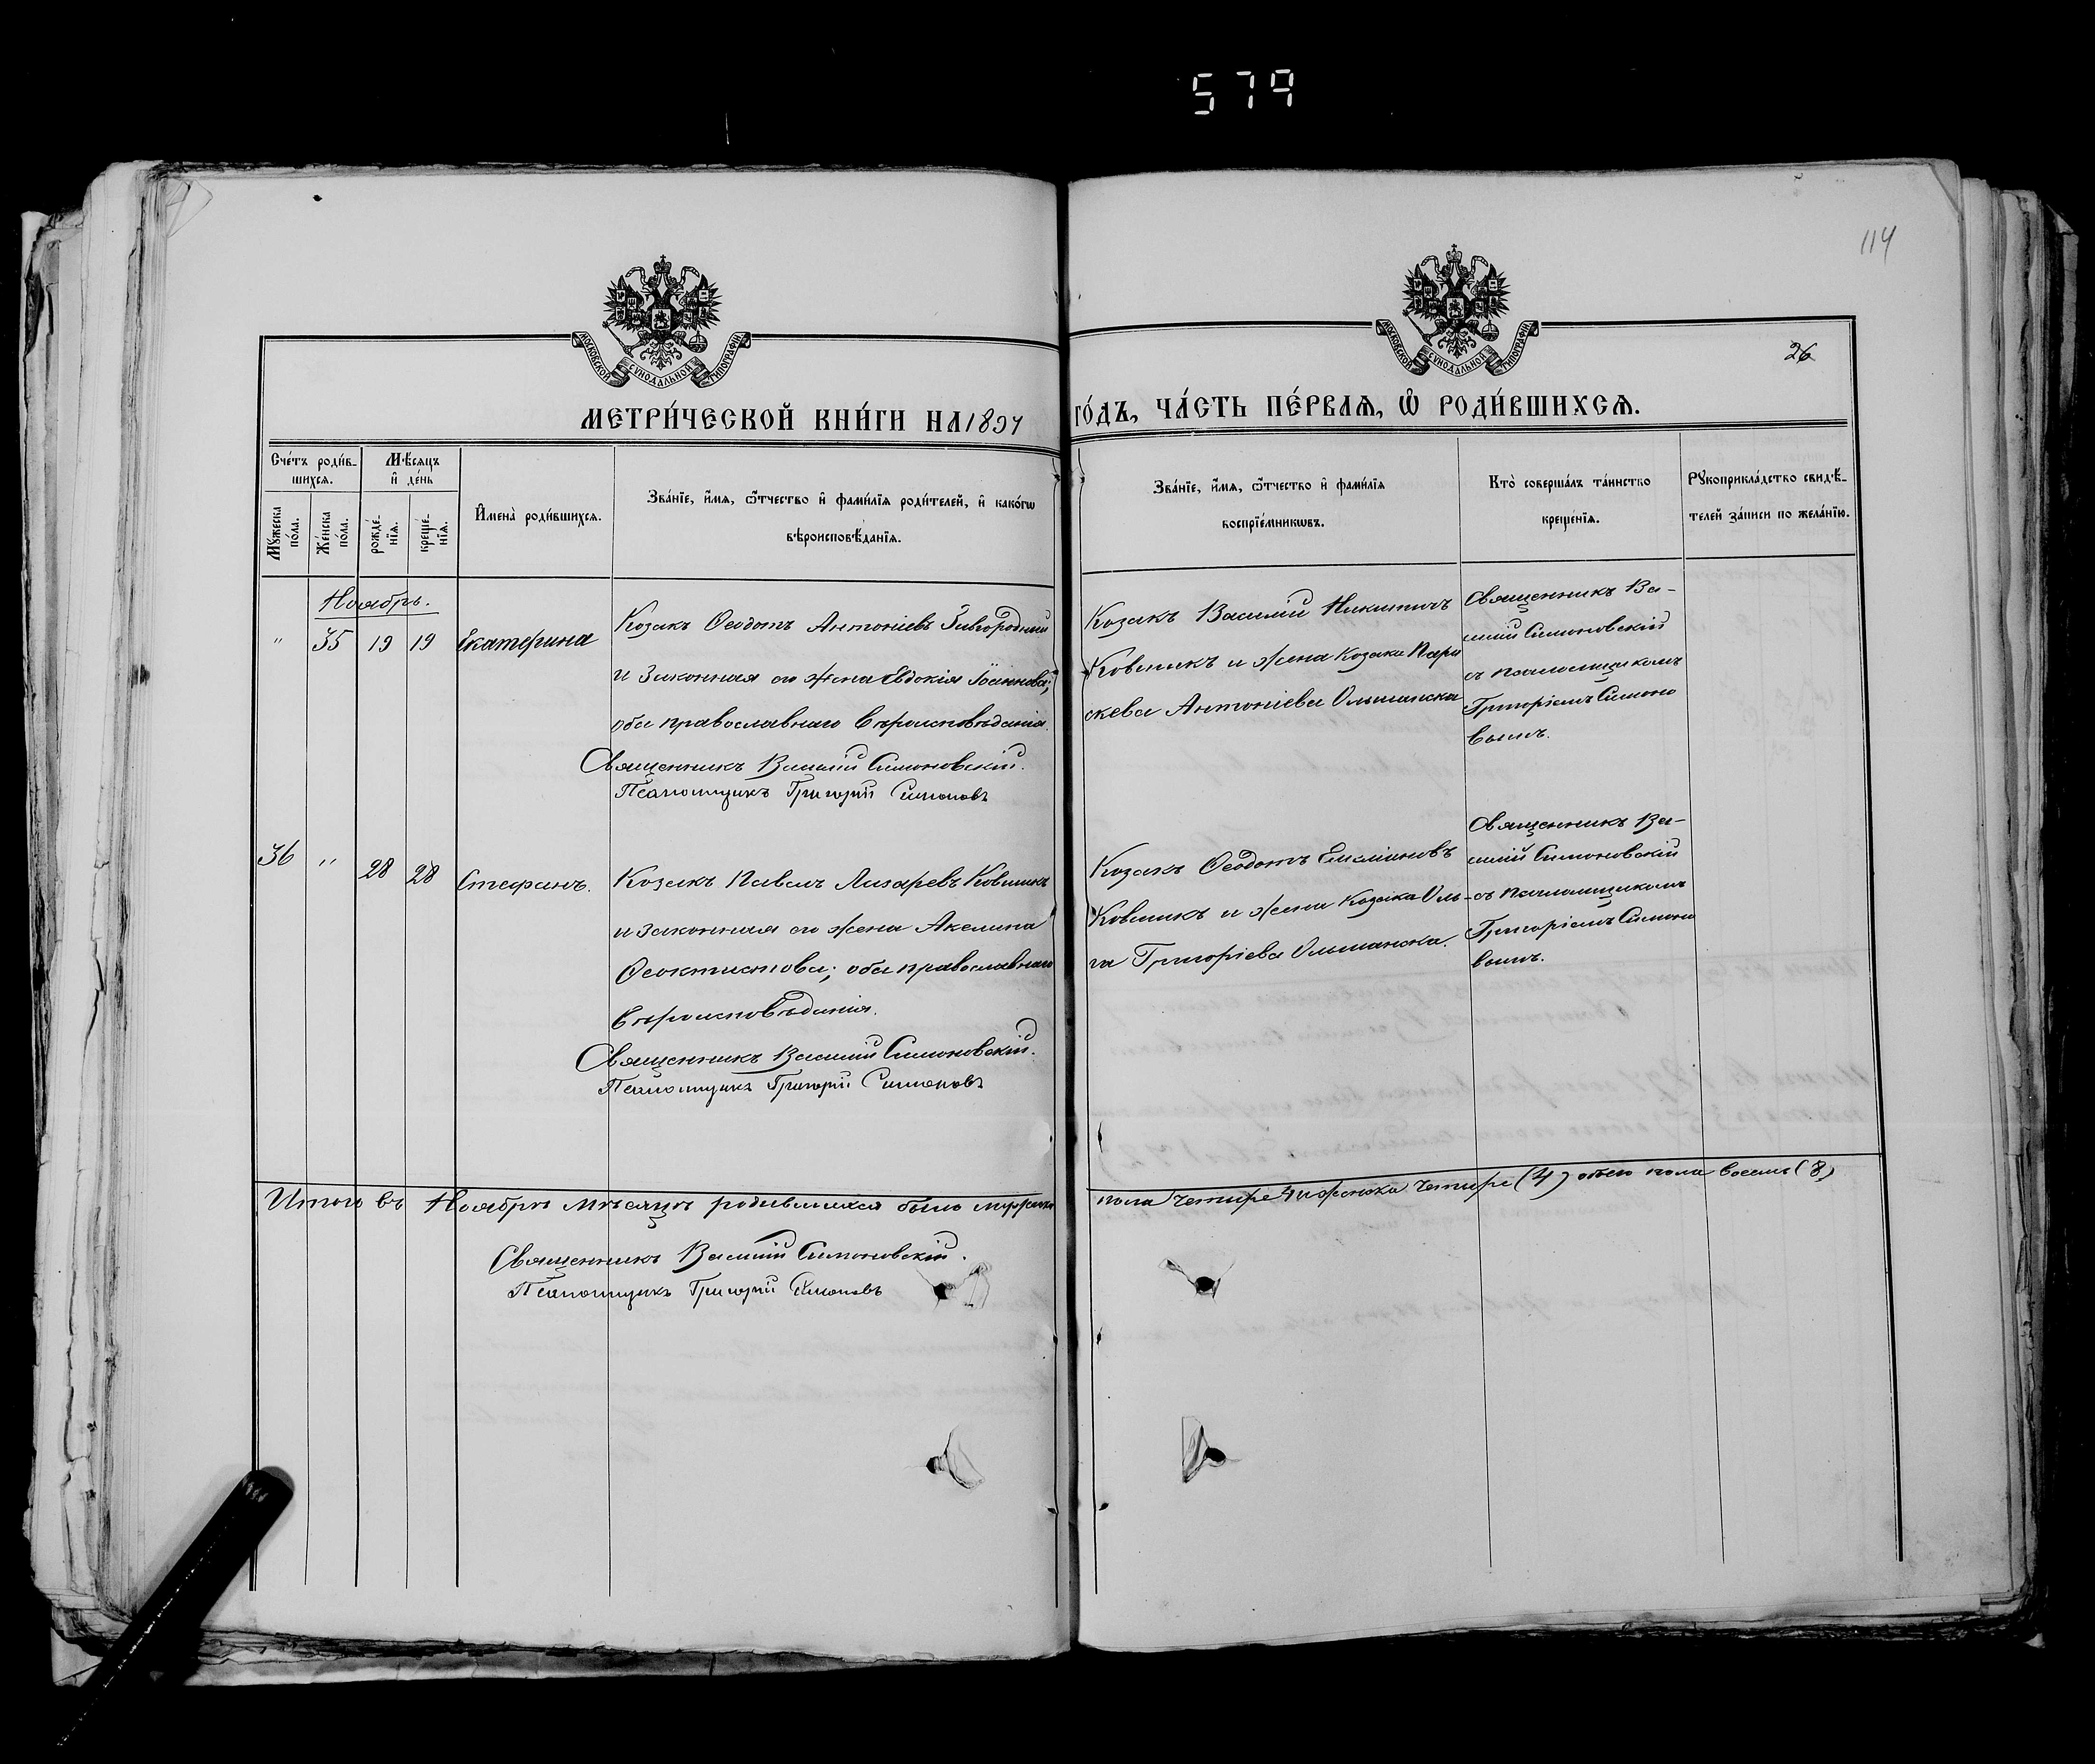 579
114
26
МОСКОВСКОЙ СѴНОДАЛЬНОЙ ТИПОГРАФІИ
МОСКОВСКОЙ СѴНОДАЛЬНОЙ ТИПОГРАФІИ
МЕТРИ́ЧЕСКОЙ КНИ́ГИ НА 1897 ГО́ДЪ, ЧА́СТЬ ПЕ́РВАѦ, Ѡ҆ РОДИ́ВШИХСѦ.
Сче́тъ роди́в-
шихсѧ.
Мꙋ́жеска по́ла.
Же́нска по́ла.
Мѣ́сѧцъ
и҆ де́нь
рожде́-
нїѧ.
креще́-
нїѧ.
И҆мена̀ роди́вшихсѧ.
Зва́нїе, и҆́мѧ, ѻ҆́тчество и҆ фами́лїѧ роди́телей, и҆ како́гѡ
вѣроисповѣ́данїѧ.
Зва́нїе, и҆́мѧ, ѻ҆́тчество и҆ фами́лїѧ
воспрїе́мникѡвъ.
Кто̀ соверша́лъ та́инство
креще́нїѧ.
Рꙋкоприкла́дство свидѣ́-
телей за́писи по жела́нїю.
Ноябрь.
" 35 19 19 Екатерина
Козакъ Ѳеодотъ Антоніевъ
и законная его жена Евдокія Іоаннова;
оба православнаго вѣроисповѣданія.
Священникъ Василій Симоновскій.
Псаломщикъ Григорій Симоновъ
Козакъ Василій Никитичъ
Ковшикъ и жена козака Пара
скева Антоніева Ольшанска
Священникъ Ва-
силій Симоновскій
съ псаломщикомъ
Григоріемъ Симоно
вымъ.
36 " 28 28 Стефанъ.
Козакъ Павелъ Лазаревъ Ковшикъ
и законная его жена Акелина
Ѳеоктистова; оба православнаго
вѣроисповѣданія.
Священникъ Василій Симоновскій.
Псаломщикъ Григорій Симоновъ
Козакъ Ѳеодотъ Емиліановъ
Ковшикъ и жена козака Оль-
га Григоріева Ольшанска.
Священникъ Ва-
силій Симоновскій
съ псаломщикомъ
Григоріемъ Симоно
вымъ.
Итого въ Ноябрѣ мѣсяцѣ родившихся было мужеска пола четыре 4 и женска четыре (4) обоего пола восемь (8)
Священникъ Василій Симоновскій.
Псаломщикъ Григорій Симоновъ